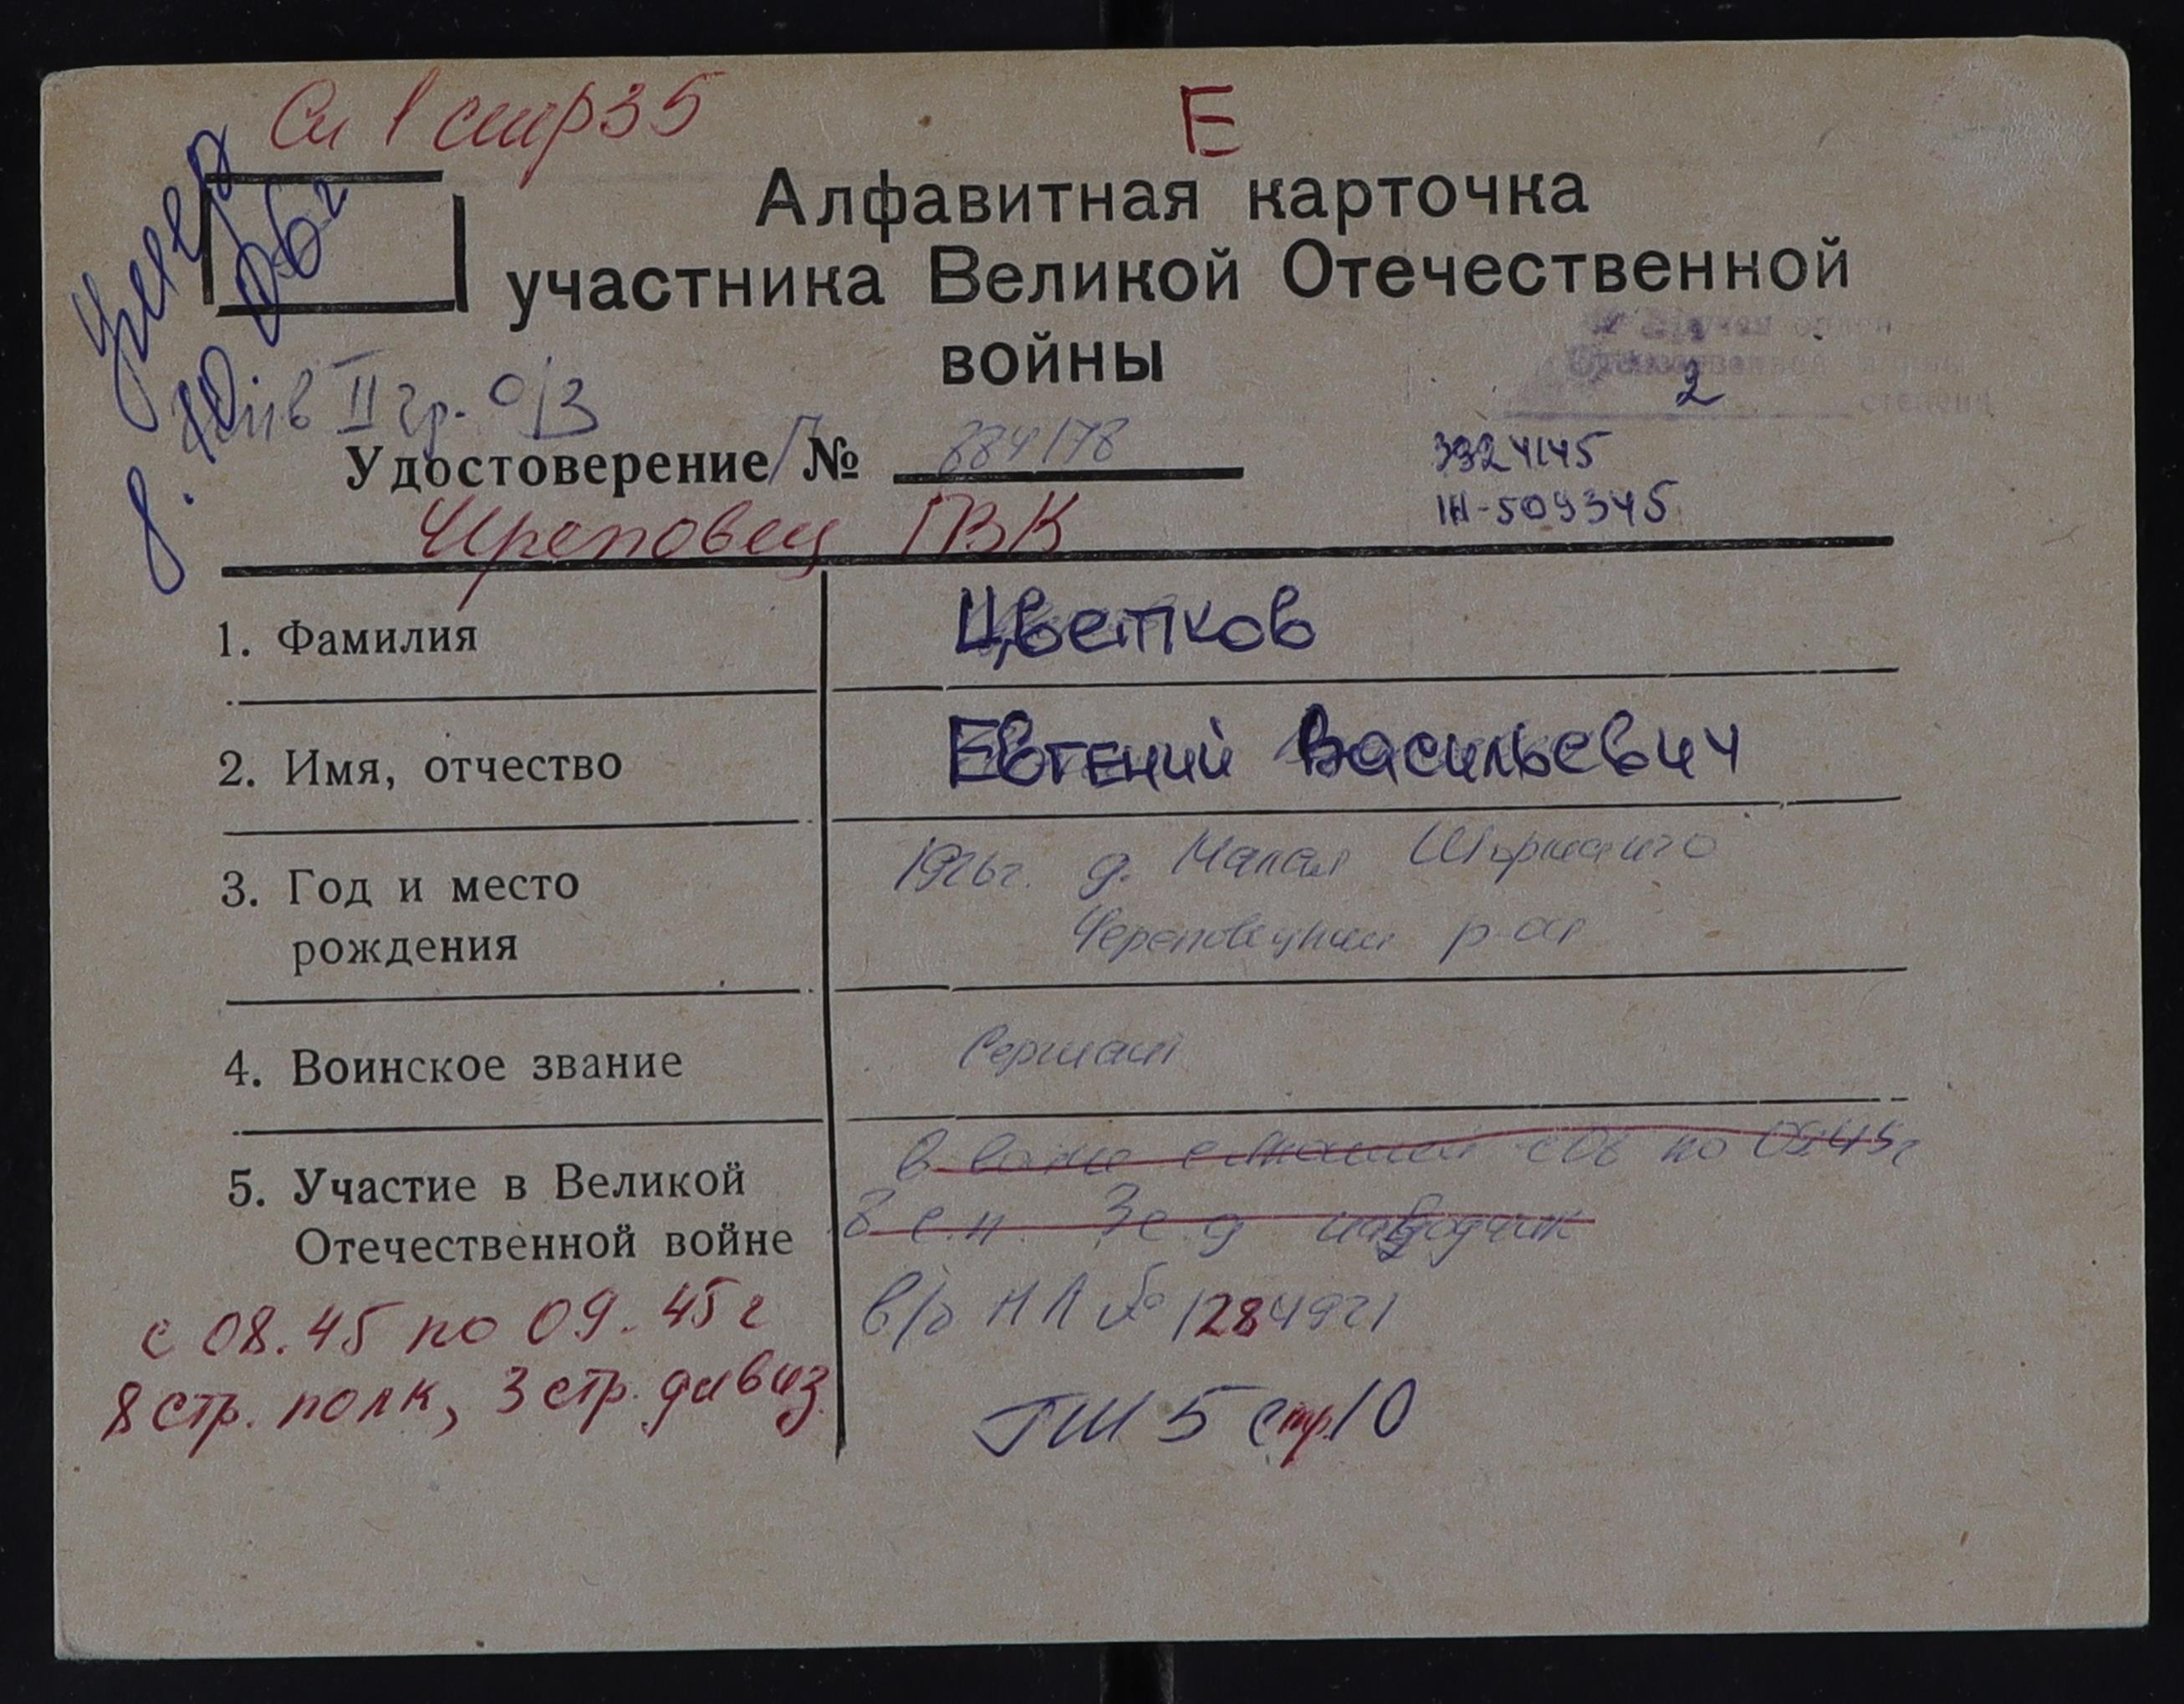 См 1 стр 35
Е
умер
8.10.06г
Алфавитная карточка
участника Великой Отечественной
войны
инв II гр. о/з
2
степени
Удостоверение Г № 884178
3324145
Череповец ГВК
1. Фамилия Цветков
2. Имя, отчество Евгений Васильевич
3. Год и место 1926г. д. Малая
рождения Череповецкий р-он
4. Воинское звание Сержант
5. Участие в Великой в войне с Японией с 08 по 09.45г
Отечественной войне 8 с.п. 3 с.д. наводчик
с 08.45 по 09.45г в/б НЛ № 1284921
8 стр. полк, 3 стр. дивиз.
ГШ 5 стр. 10